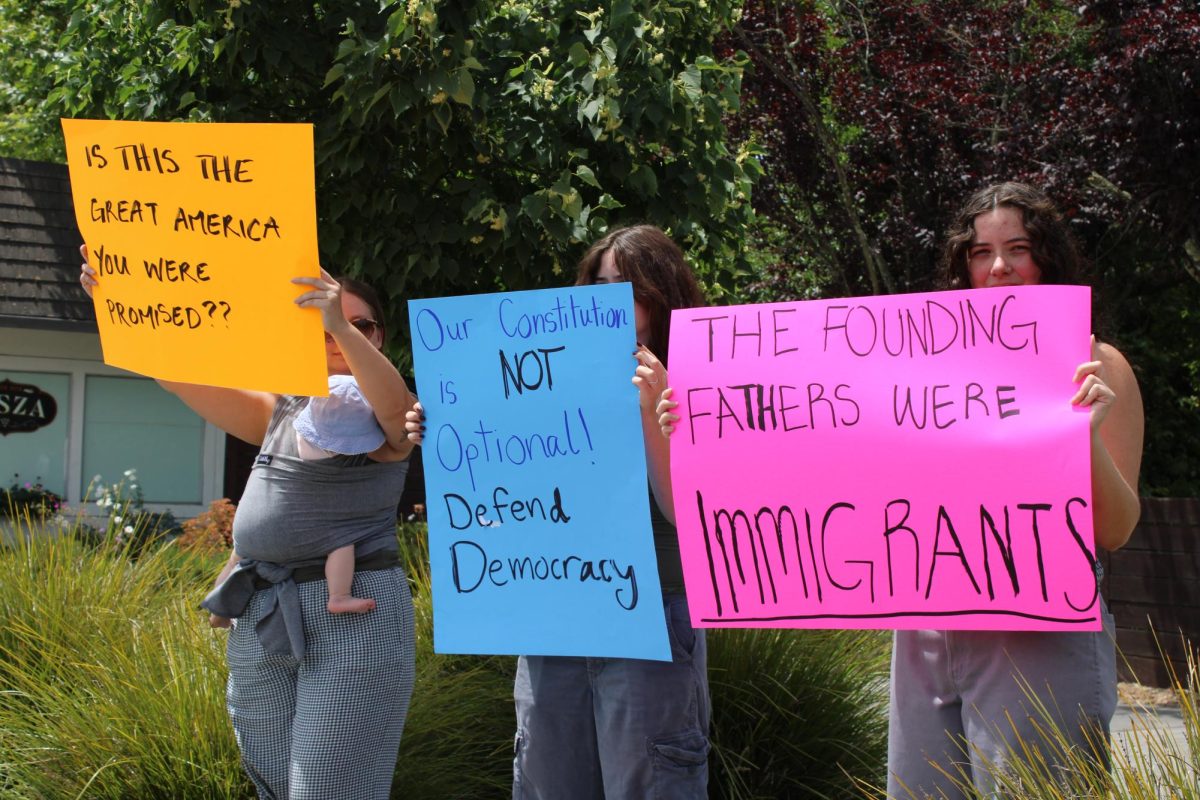 IS THIS THE
GREAT AMERICA
YOU WERE
PROMISED??
Our Constitution
is NOT
Optional!
Defend
Democracy
THE FOUNDING
FATHERS WERE
IMMIGRANTS